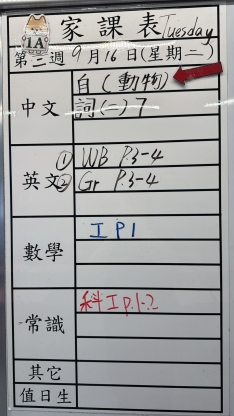 1A 家課表 Tuesday
第三週 9月16日(星期二)
中文 自(動物)
詞(二)7
英文 ① WB P.3-4
② Gr P.3-4
數學 IP1
常識 科IP.1-2
其它
值日生